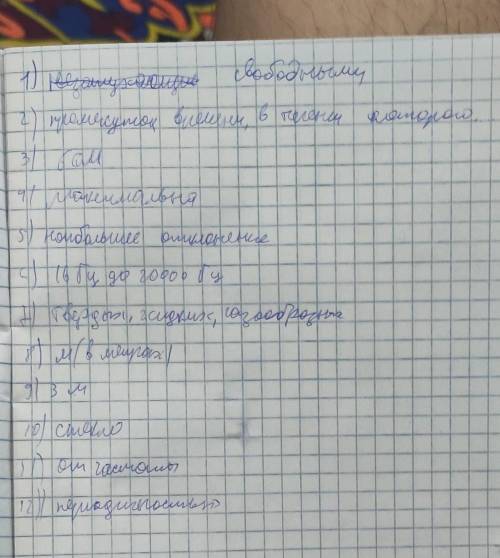 1) незатухающие свободными
2) промежуток времени, в течении которого.
3) 6 см
4) максимальна
5) наибольшее отклонение
6) 16 Гц до 20000 Гц
7) твердых, жидких, газообразных
8) м (в метрах)
9) 3 м
10) стекло
11) от частоты
12) периодичностью